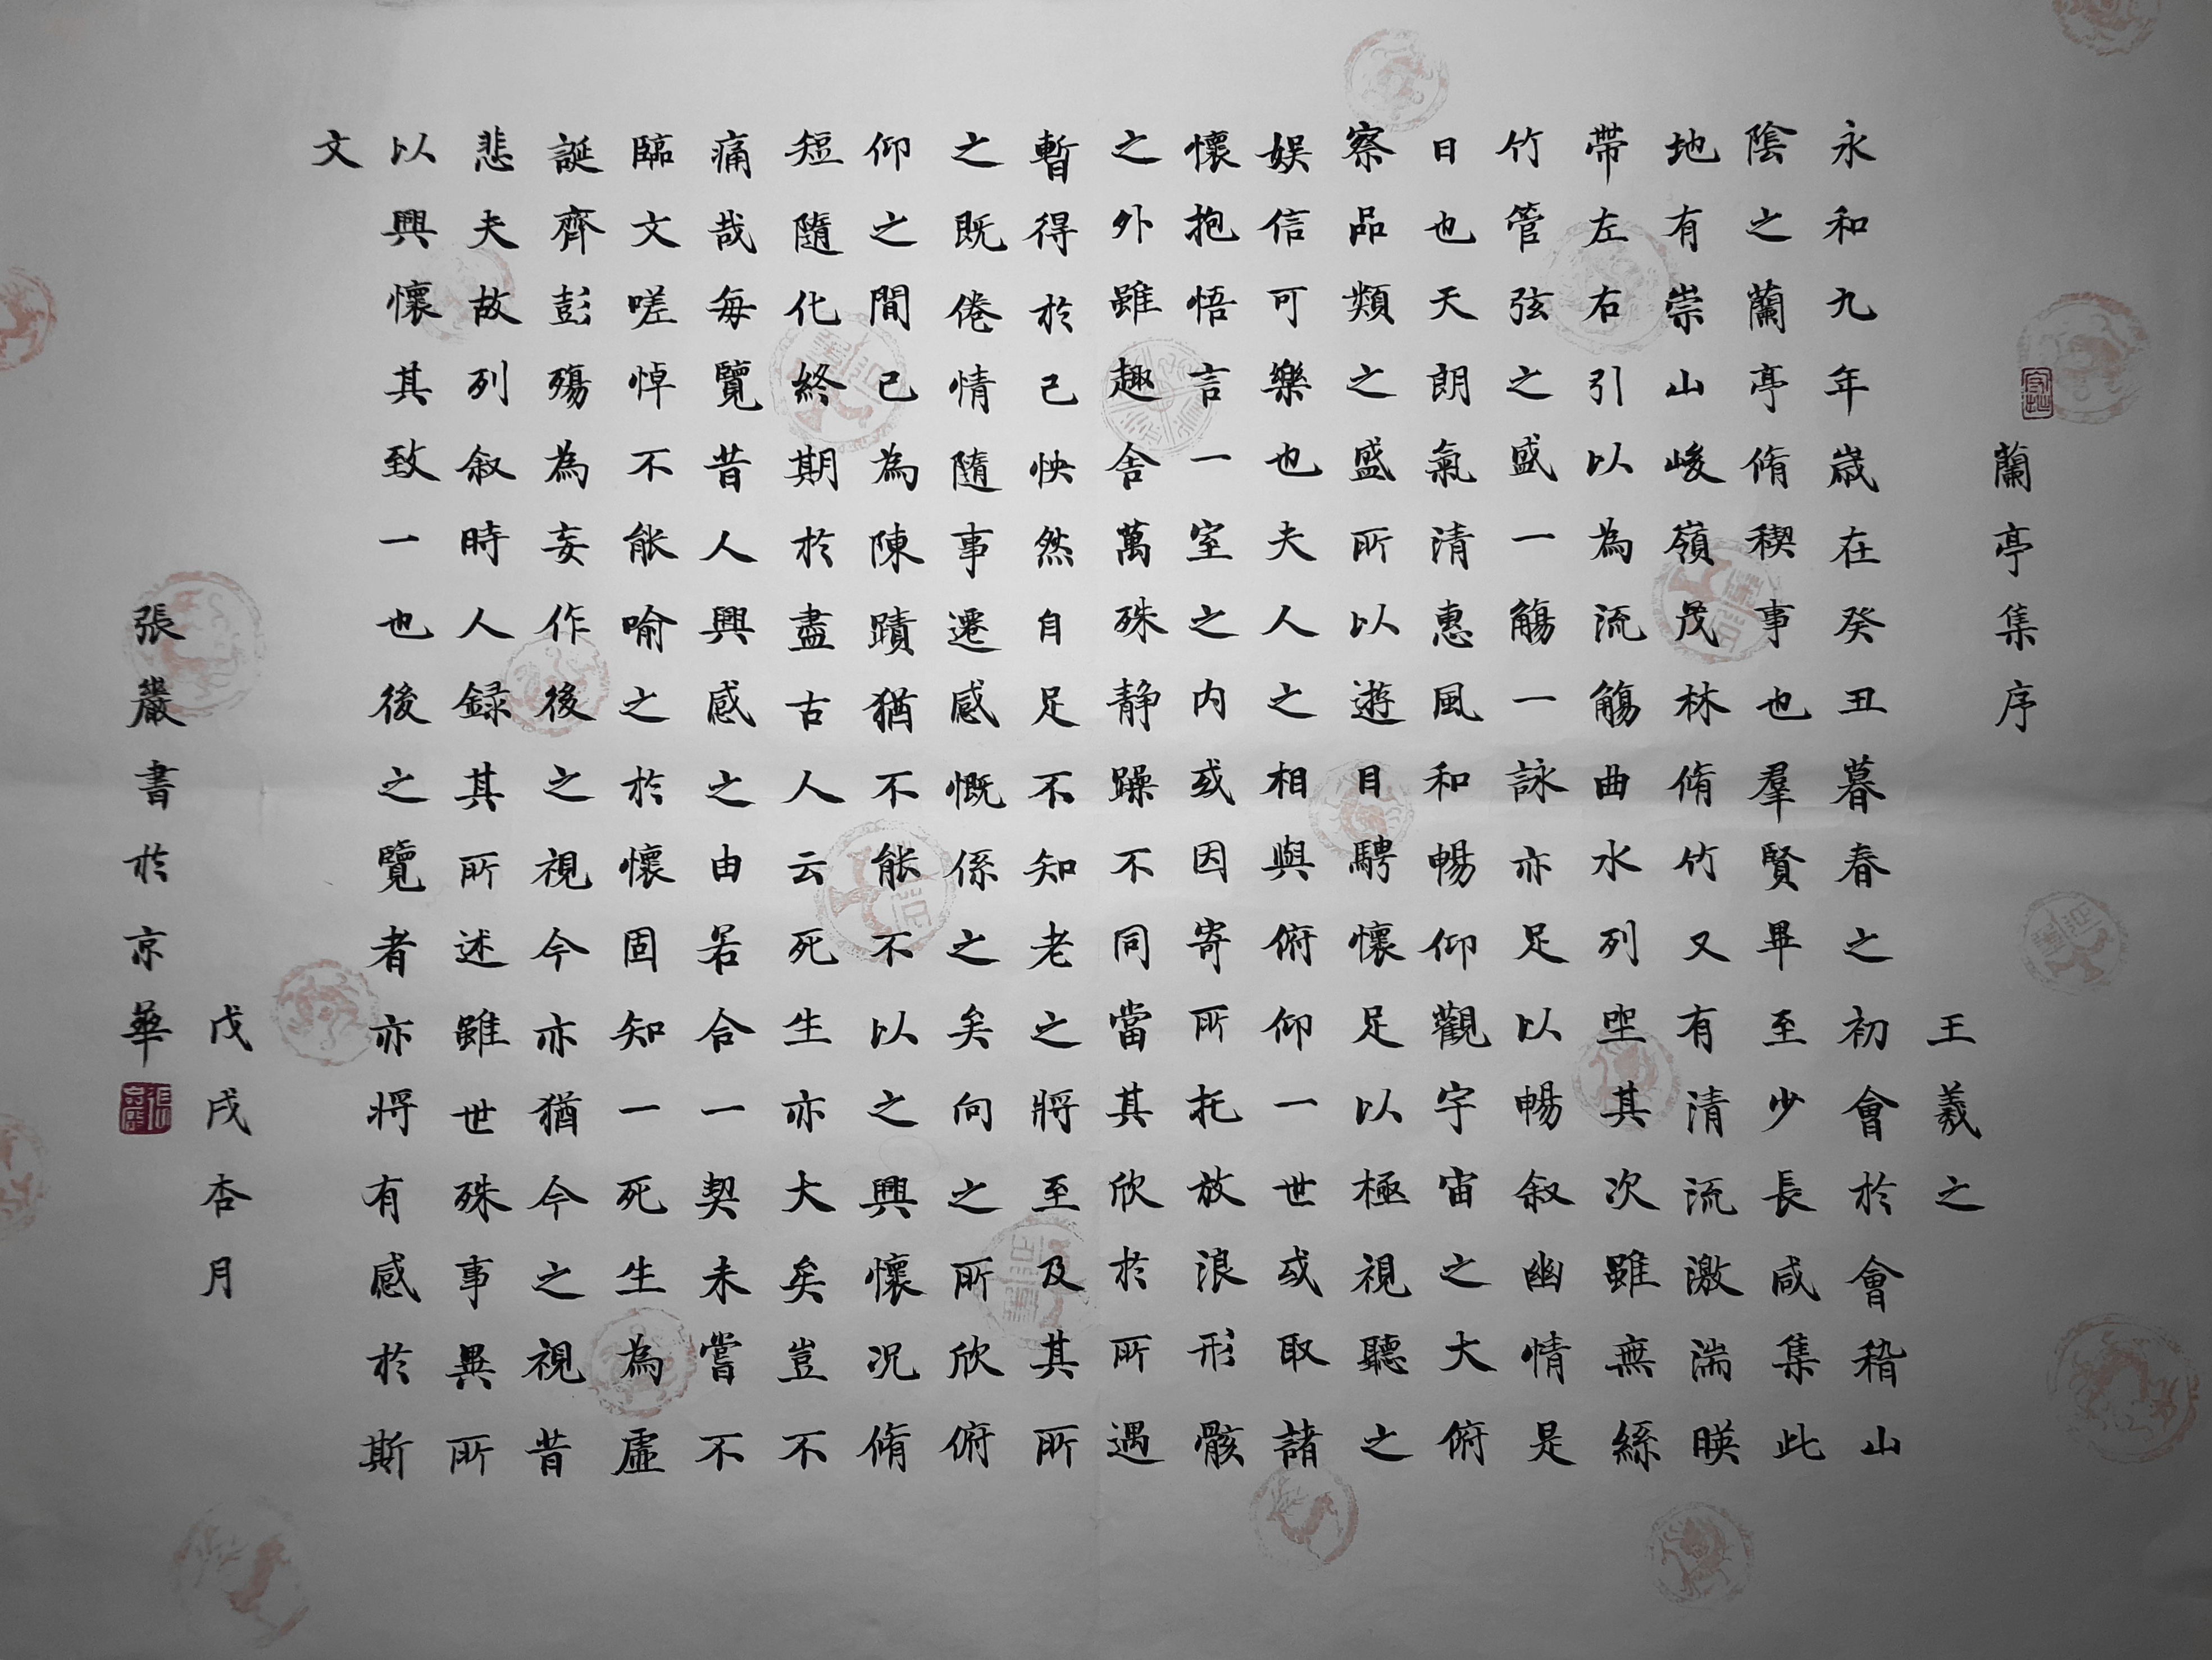 蘭亭集序
王羲之
永和九年歲在癸丑暮春之初會於會稽山
陰之蘭亭脩稧事也羣賢畢至少長咸集此
地有崇山峻嶺茂林脩竹又有清流激湍暎
帶左右引以為流觴曲水列坐其次雖無絲
竹管弦之盛一觴一詠亦足以暢叙幽情是
日也天朗氣清惠風和暢仰觀宇宙之大俯
察品類之盛所以遊目騁懷足以極視聽之
娛信可樂也夫人之相與俯仰一世或取諸
懷抱悟言一室之內或因寄所托放浪形骸
之外雖趣舍萬殊静躁不同當其欣於所遇
暫得於己怏然自足不知老之將至及其所
之既倦情隨事遷感慨係之矣向之所欣俯
仰之間已為陳蹟猶不能不以之興懷況脩
短隨化終期於盡古人云死生亦大矣豈不
痛哉每覽昔人興感之由若合一契未嘗不
臨文嗟悼不能喻之於懷固知一死生為虛
誕齊彭殤為妄作後之視今亦猶今之視昔
悲夫故列叙時人録其所述雖世殊事異所
以興懷其致一也後之覽者亦將有感於斯
文
戊戌杏月
張巖書於京華